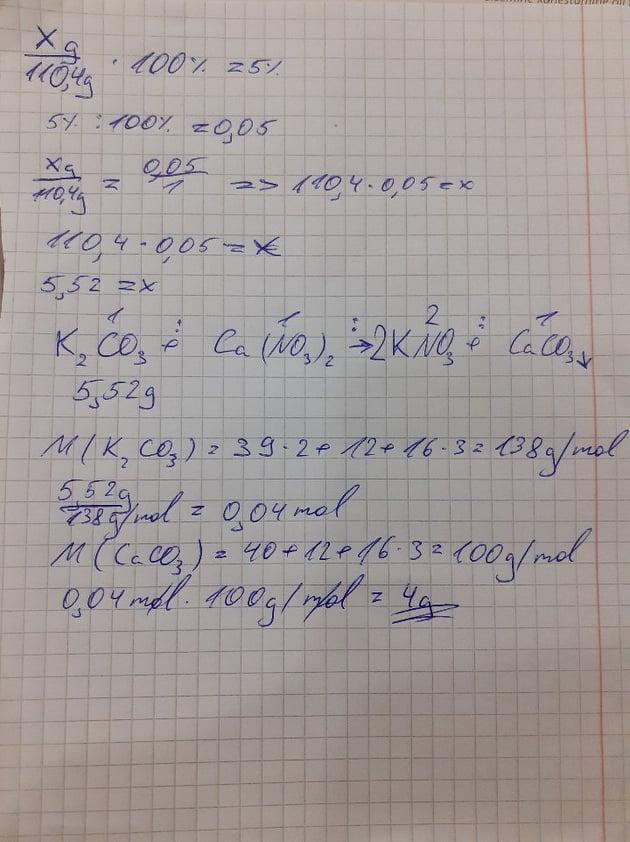 X g / 110,4g · 100% = 5%
5% : 100% = 0,05
xg / 110,4g = 0,05 / 1 => 110,4 · 0,05 = x
110,4 · 0,05 = x
5,52 = x
1 : 1 : 2 : 1
K₂CO₃ + Ca(NO₃)₂ → 2KNO₃ + CaCO₃↓
5,52g
M(K₂CO₃) = 39·2 + 12 + 16·3 = 138g/mol
5,52g / 138g/mol = 0,04 mol
M(CaCO₃) = 40 + 12 + 16·3 = 100g/mol
0,04 mol · 100g/mol = 4g